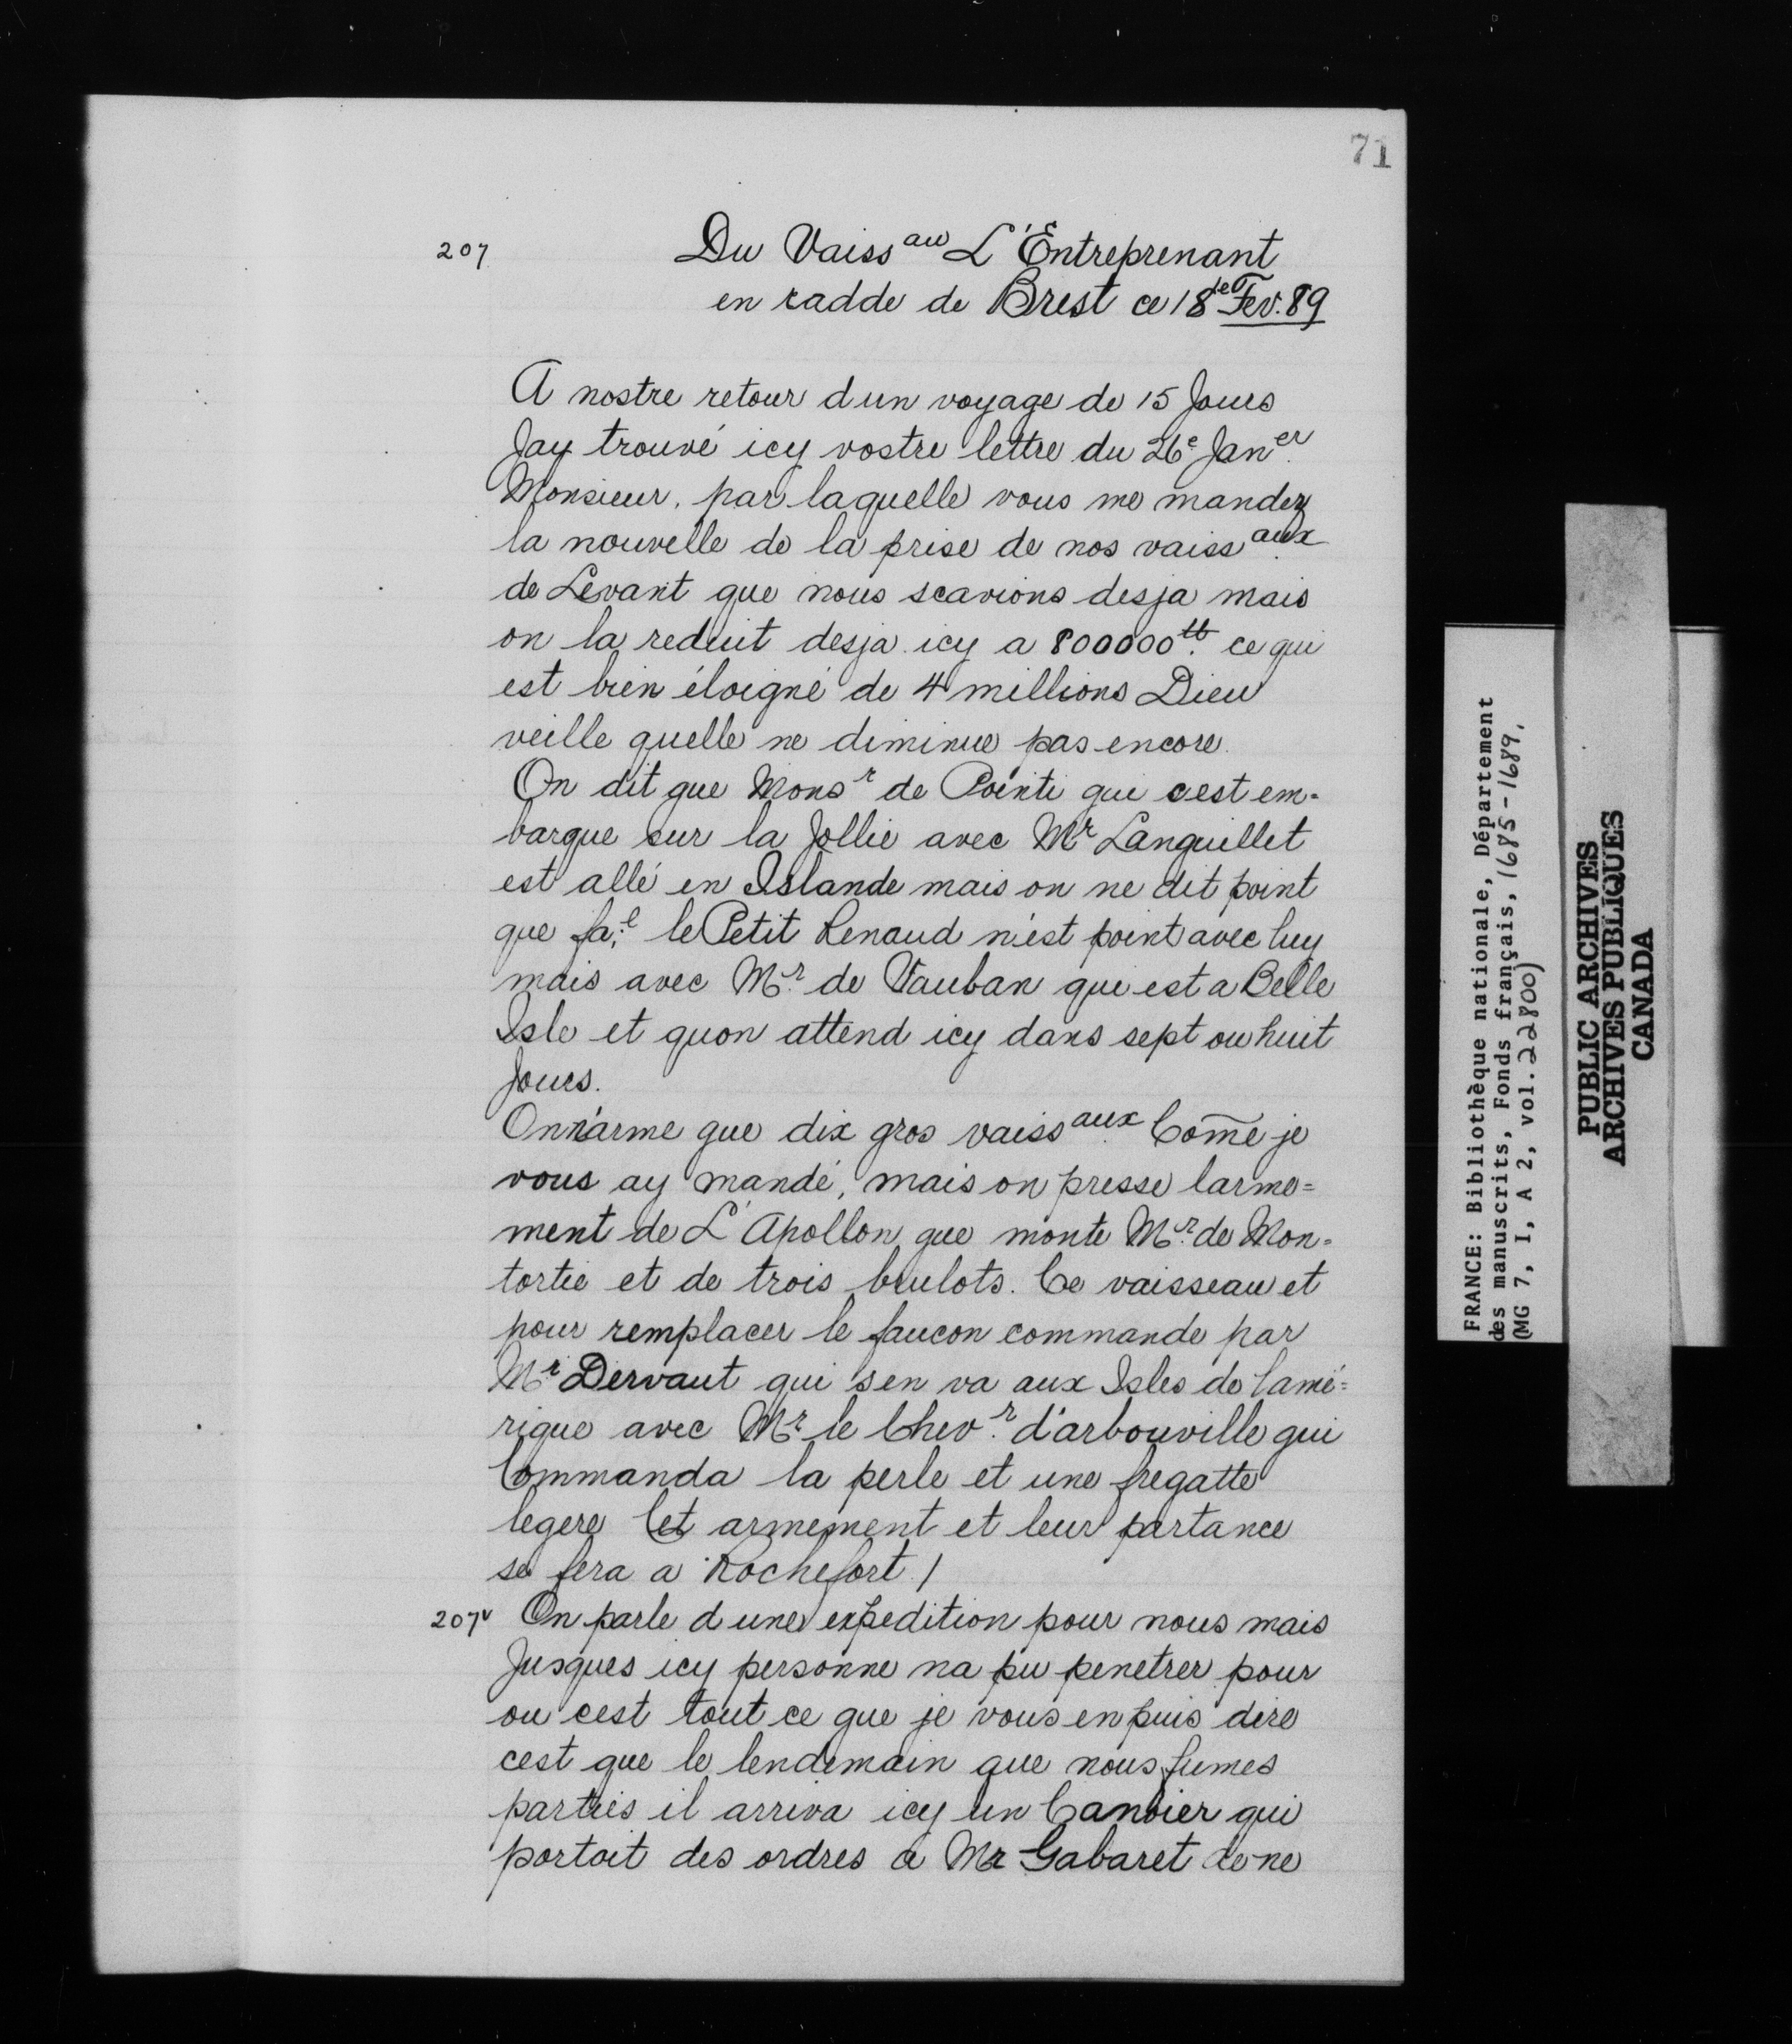 71
207
Du Vaiss^au L'Entreprenant
en radde de Brest ce 18^e Fev. 89
A nostre retour d un voyage de 15 Jours
Jay trouvé icy vostre lettre du 26^e Jan^er.
Monsieur, par laquelle vous me mandez
la nouvelle de la prise de nos vaiss^aux
de Levant que nous scavions desja mais
on la reduit desja icy a 800000^tt. ce qui
est bien éloigné de 4 millions Dieu
veille quelle ne diminue pas encore.
On dit que Mons^r de Pointi qui cest em-
barque sur la Jollie avec M^r Languillet
est allé en Islande mais on ne dit point
que le Petit Renaud n'est point avec luy
mais avec M^r. de Vauban qui est a Belle
Isle et quon attend icy dans sept ou huit
Jours.
On n'arme que dix gros vaiss^aux. Com̄e je
vous ay mandé, mais on presse larme=
ment de L'Apollon que monte M^r. de Mon=
tortie et de trois brulots. Ce vaisseau et
pour remplacer le faucon commande par
M^r Dervaut qui s'en va aux Isles de lamé=
rique avec M^r le Chev^r. d'arbouville qui
Commanda la perle et une fregatte
legere Cet armement et leur partance
se fera a Rochefort /
207^v On parle d une expedition pour nous mais
Jusques icy personne na pu penetrer pour
ou cest tout ce que je vous en puis dire
cest que le lendemain que nous fumes
partis il arriva icy un qui
portoit des ordres a Mr Gabaret de ne
FRANCE: Bibliothèque nationale, Département
des manuscrits, Fonds français, 1685-1689.
(MG 7, I, A 2, vol. 22800)
PUBLIC ARCHIVES
ARCHIVES PUBLIQUES
CANADA